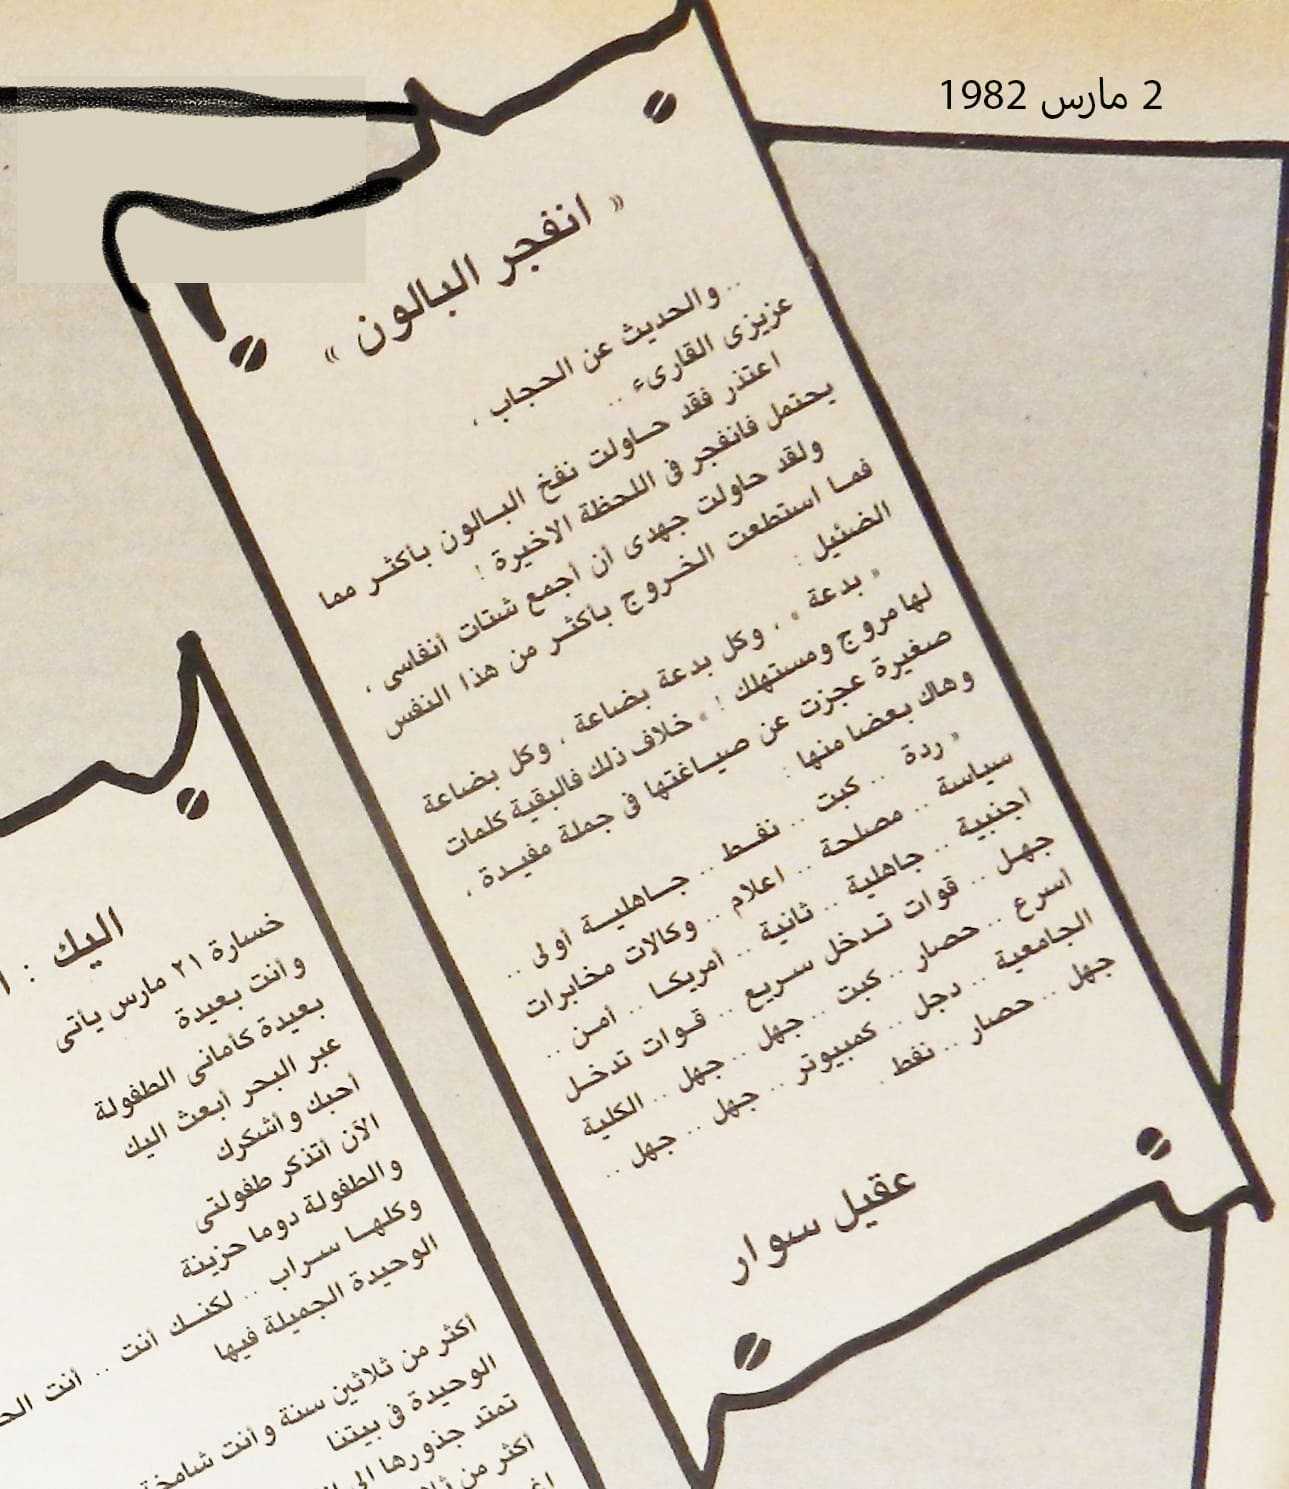 2 مارس 1982
« انفجر البالون »
!
.. والحديث عن الحجاب ،
عزيزى القارىء ..
اعتذر فقد حاولت نفخ البالون بأكثر مما
يحتمل فانفجر فى اللحظة الاخيرة !
ولقد حاولت جهدى أن أجمع شتات أنفاسى ،
فما استطعت الخروج بأكثر من هذا النفس
الضئيل :
« بدعة » ، وكل بدعة بضاعة ، وكل بضاعة
لها مروج ومستهلك ! » خلاف ذلك فالبقية كلمات
صغيرة عجزت عن صياغتها فى جملة مفيدة ،
وهاك بعضا منها :
« ردة .. كبت .. نفط .. جاهلية أولى ..
سياسة .. مصلحة .. اعلام .. وكالات مخابرات
أجنبية .. جاهلية .. ثانية .. أمريكا .. أمن ..
جهل .. قوات تدخل سريع .. قوات تدخل
أسرع .. حصار .. كبت .. جهل .. جهل .. الكلية
الجامعية .. دجل .. كمبيوتر .. جهل .. جهل ..
جهل .. حصار .. نفط .
عقيل سوار
اليك :
خسارة ٢١ مارس يأتى
وأنت بعيدة
بعيدة كأمانى الطفولة
عبر البحر أبعث اليك
أحبك وأشكرك
الآن أتذكر طفولتى
والطفولة دوما حزينة
وكلها سراب .. لكنك أنت .. أنت
الوحيدة الجميلة فيها
أكثر من ثلاثين سنة وأنت شامخة
الوحيدة فى بيتنا
تمتد جذورها الى
أكثر من